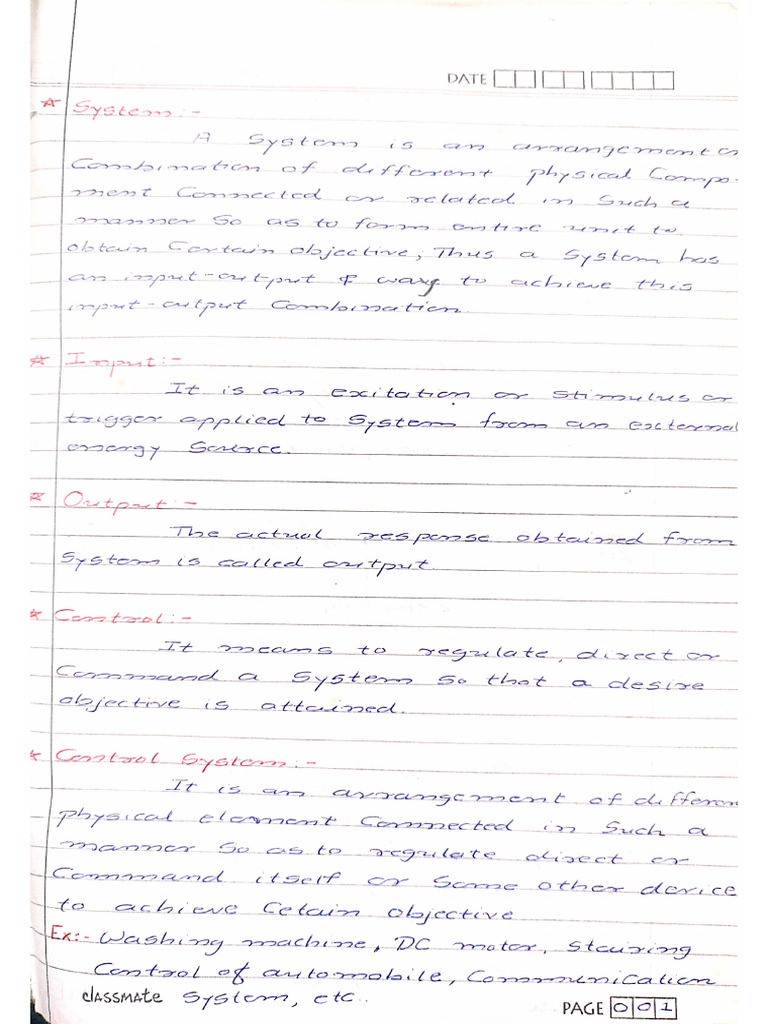 DATE
* System:-
A System is an arrangement or
Combination of different physical Compo-
ment Connected or related in Such a
manner So as to form entire unit to
obtain Certain objective, Thus a System has
an input-output & way to achieve this
input-output Combination.
* Input:-
It is an exitation or stimulus or
trigger applied to System from an external
energy Source.
* Output:-
The actual response obtained from
System is called output
* Control:-
It means to regulate, direct or
Command a System so that a desire
objective is attained.
* Control System:-
It is an arrangement of differen
physical element Connected in Such a
manner So as to regulate direct or
Command itself or Some other device
to achieve Cetain objective
Ex:- Washing machine, DC motor, Stairing
Control of automobile, Communication
classmate System, etc..
PAGE 001